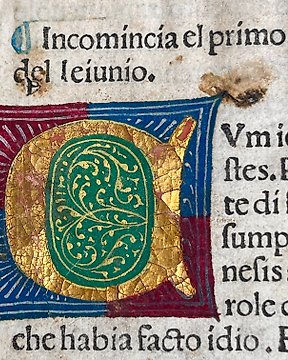 ¶ Incomincia el primo
del Ieiunio.
CVm ie
ſtes. P
te di ſ
ſump
neſis
role
che habia facto idio.